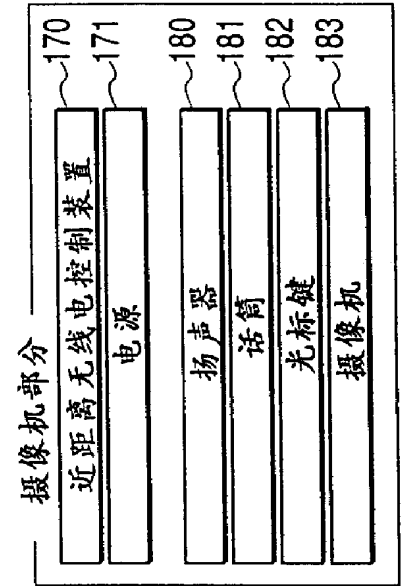 摄像机部分
近距离无线电控制装置 170
电源 171
扬声器 180
话筒 181
光标键 182
摄像机 183